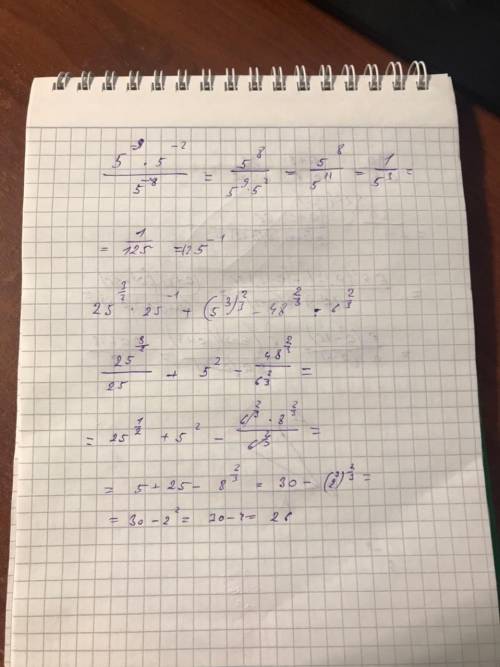 5⁻⁹ · 5⁻² / 5⁻⁸ = 5⁸ / 5⁹·5² = 5⁸ / 5¹¹ = 1 / 5³ =
= 1 / 125 = 125⁻¹
25^(3/2) · 25⁻¹ + (5³)^(2/3) - 48^(2/3) : 6^(2/3)
25^(3/2) / 25 + 5² - 48^(2/3) / 6^(2/3) =
= 25^(1/2) + 5² - 6^(2/3) · 8^(2/3) / 6^(2/3) =
= 5 + 25 - 8^(2/3) = 30 - (2³)^(2/3) =
= 30 - 2² = 30 - 4 = 26